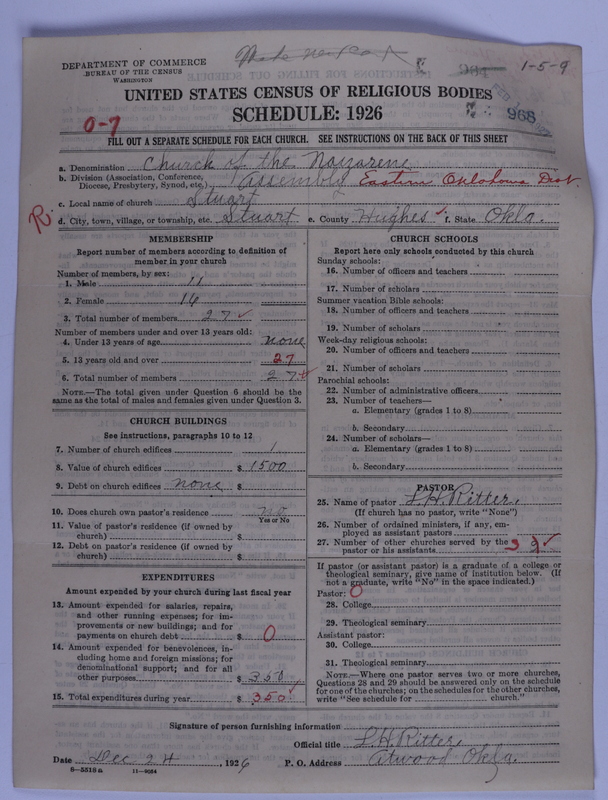 DEPARTMENT OF COMMERCE
BUREAU OF THE CENSUS
WASHINGTON
1-5-9
UNITED STATES CENSUS OF RELIGIOUS BODIES
SCHEDULE: 1926
968
0-7
FILL OUT A SEPARATE SCHEDULE FOR EACH CHURCH. SEE INSTRUCTIONS ON THE BACK OF THIS SHEET
a. Denomination Church of the Nazarene
b. Division (Association, Conference, Diocese, Presbytery, Synod, etc.) Assembly Eastern Oklahoma Dist.
c. Local name of church Stuart
R.
d. City, town, village, or township, etc. Stuart e. County Hughes f. State Okla.
MEMBERSHIP
Report number of members according to definition of
member in your church
Number of members, by sex:
1. Male 11
2. Female 16
3. Total number of members 27
Number of members under and over 13 years old:
4. Under 13 years of age none
5. 13 years old and over 27
6. Total number of members 27
NOTE.—The total given under Question 6 should be
same as the total of males and females given under Question 3.
CHURCH BUILDINGS
See instructions, paragraphs 10 to 12
7. Number of church edifices 1
8. Value of church edifices $ 1500
9. Debt on church edifices none $
10. Does church own pastor's residence no
Yes or No
11. Value of pastor's residence (if owned by
church) $
12. Debt on pastor's residence (if owned by
church) $
EXPENDITURES
Amount expended by your church during last fiscal year
13. Amount expended for salaries, repairs,
and other running expenses; for im-
provements or new buildings; and for
payments on church debt $ 0
14. Amount expended for benevolences, in-
cluding home and foreign missions; for
denominational support; and for all
other purposes $ 350
15. Total expenditures during year $ 350
CHURCH SCHOOLS
Report here only schools conducted by this church
Sunday schools:
16. Number of officers and teachers
17. Number of scholars
Summer vacation Bible schools:
18. Number of officers and teachers
19. Number of scholars
Week-day religious schools:
20. Number of officers and teachers
21. Number of scholars
Parochial schools:
22. Number of administrative officers
23. Number of teachers—
a. Elementary (grades 1 to 8)
b. Secondary
24. Number of scholars—
a. Elementary (grades 1 to 8)
b. Secondary
PASTOR
25. Name of pastor L.H. Ritter,
(If church has no pastor, write "None")
26. Number of ordained ministers, if any, em-
ployed as assistant pastors
27. Number of other churches served by the
pastor or his assistants 3
If pastor (or assistant pastor) is a graduate of a college or
theological seminary, give name of institution below. (If
not a graduate, write "No" in the space indicated.)
Pastor: 0
28. College
29. Theological seminary
Assistant pastor:
30. College
31. Theological seminary
NOTE.—Where one pastor serves two or more churches,
Questions 28 and 29 should be answered only on the schedule
for one of the churches; on the schedules for the other churches,
write "See schedule for church."
Signature of person furnishing information
Official title L.H. Ritter,
Date Dec 24, 1926 P. O. Address Atwood Okla.
8-5518a 11-9064